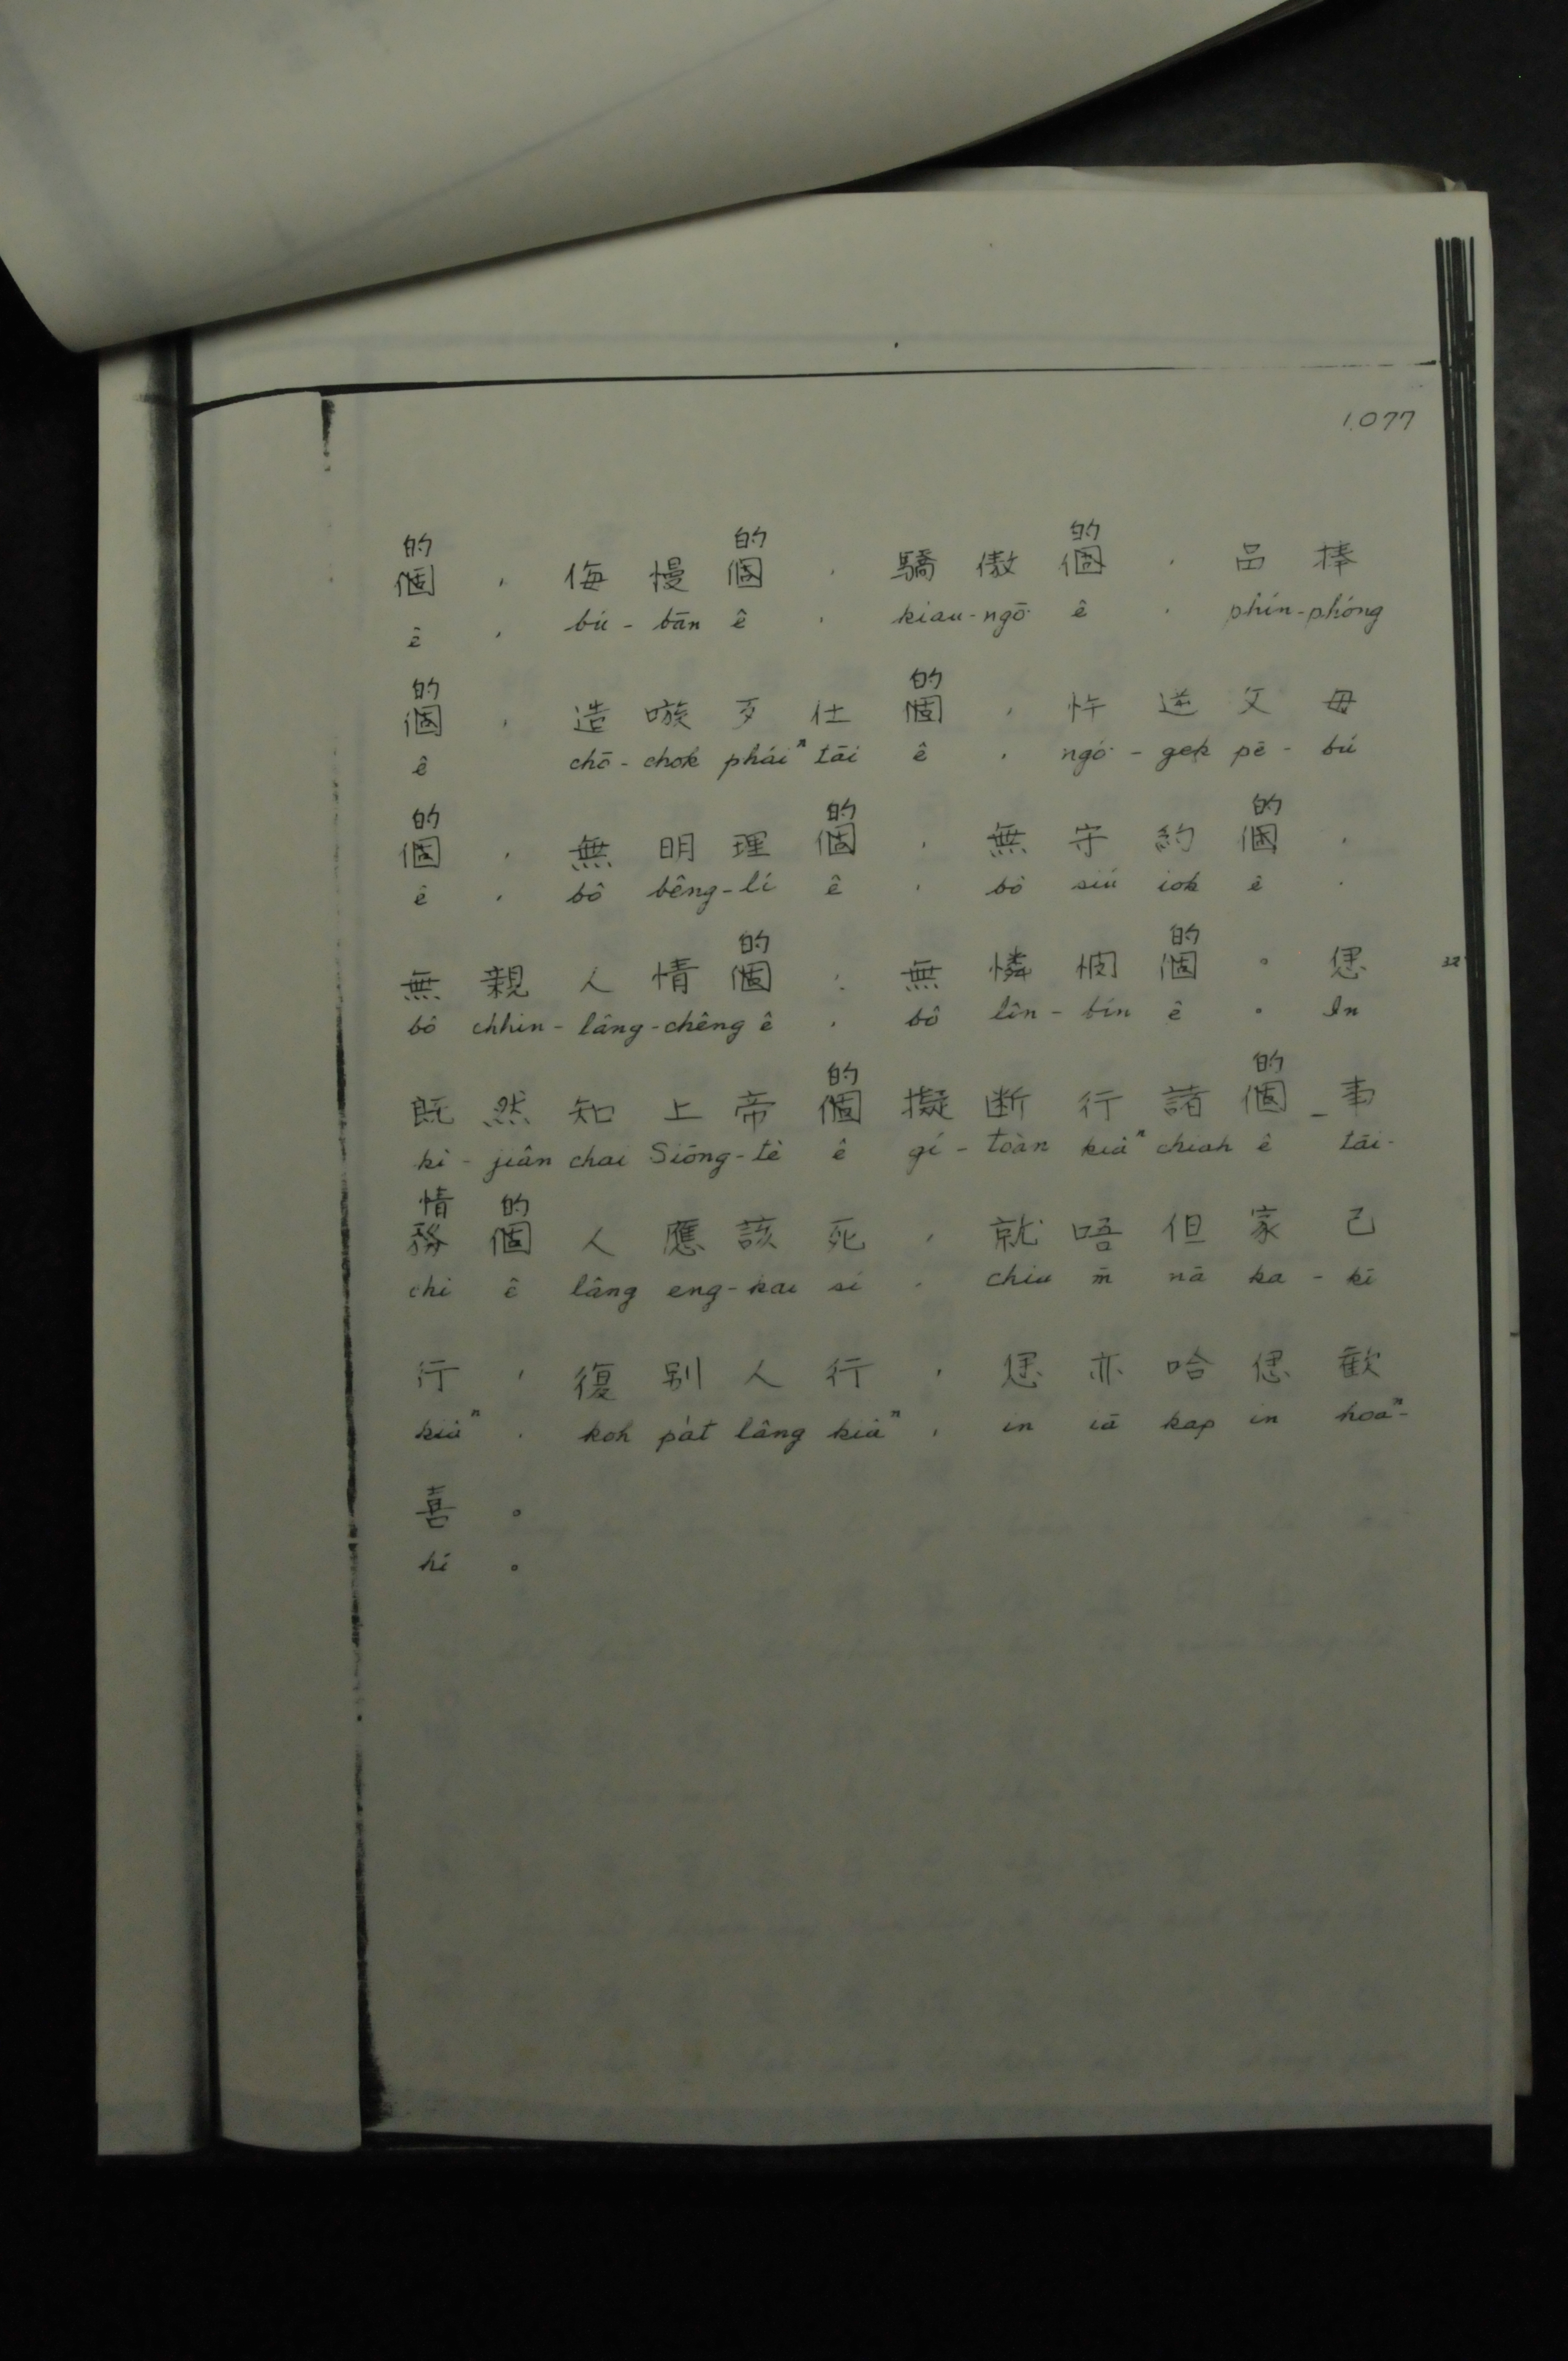 1.077
的 的 的
個 , 侮 慢 個 , 驕 傲 個 , 品 捧
ê , bú - bān ê , kiau - ngō͘ ê , phín - phóng
的 的
個 , 造 嗾 歹 仕 個 , 忤 逆 父 母
ê chō - chok pháiⁿ tāi ê , ngó͘ - gek pē - bú
的 的 的
個 , 無 明 理 個 , 無 守 約 個 ,
ê , bô bêng - lí ê , bô siú iok ê ,
的 的
無 親 人 情 個 , 無 憐 憫 個 。 𪜶 32
bô chhin - lâng - chêng ê , bô lîn - bín ê 。 In
的 的
既 然 知 上 帝 個 擬 断 行 諸 個 事
kì - jiân chai Siōng - tè ê gí - toàn kiâⁿ chiah ê tāi -
情 的
務 個 人 應 該 死 , 就 唔 但 家 己
chì ê lâng eng - kai sí , chiu m̄ nā ka - kī
行 , 復 别 人 行 , 𪜶 亦 哈 𪜶 歡
kiâⁿ , koh pa̍t lâng kiâⁿ , in iā kap in hoaⁿ -
喜 。
hí 。